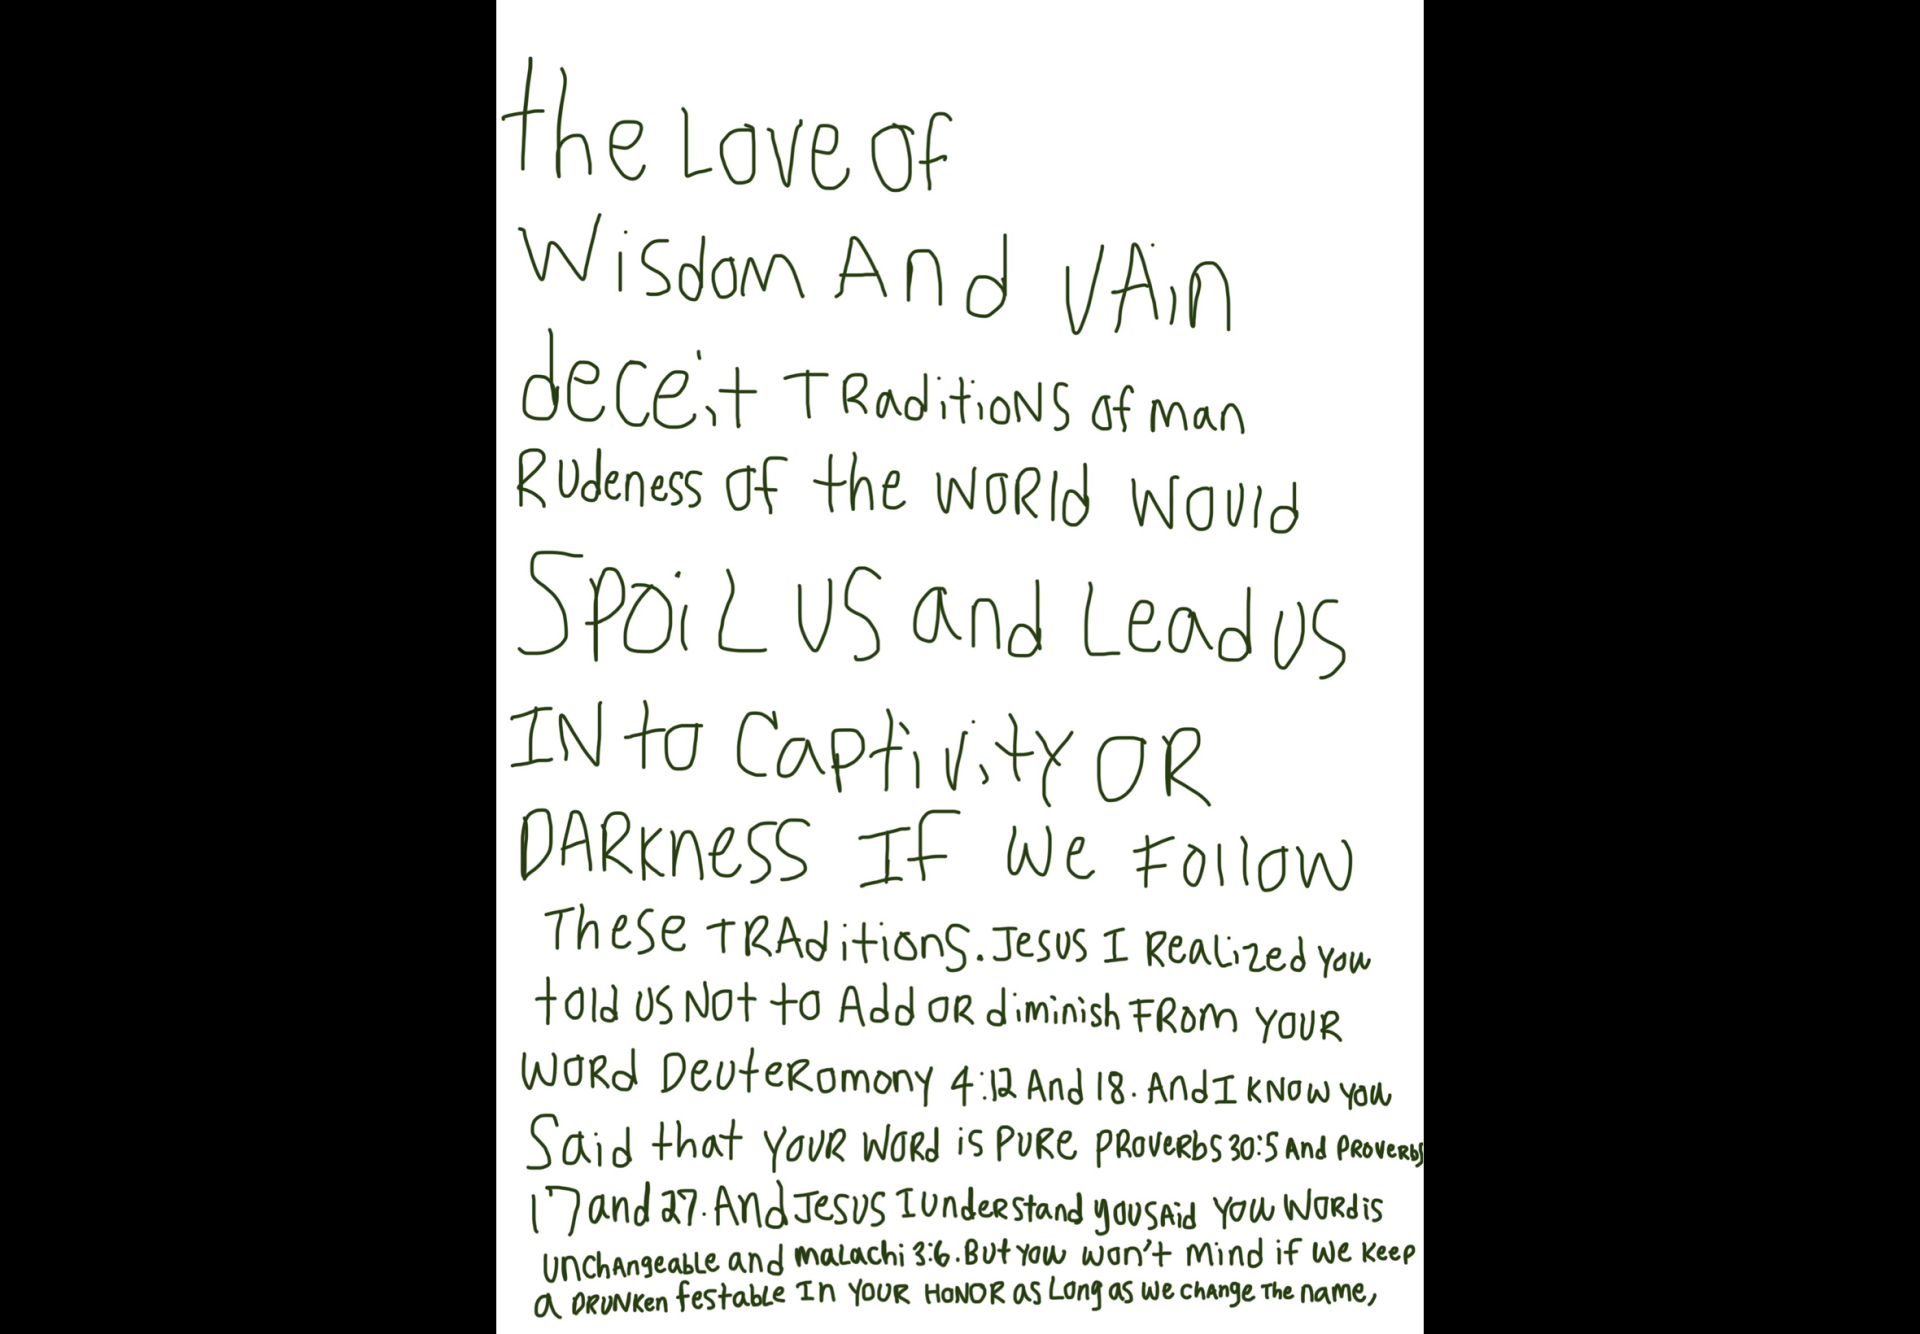 the Love of
Wisdom And VAin
deceit TRaditioNS of man
RUdeness of the WORld WOUld
SPOiL US and Lead US
INto Captivity OR
DARKness If We Follow
These TRAditionS. Jesus I Realized you
told US Not to Add OR diminish FROm YOUR
WORd DeuteRomony 4:12 And 18. And I KNOW you
Said that YOUR WORd is PURe PRoveRbS 30:5 And PRoveRbS
17 and 27. And Jesus I UndeRstand yousaid YOU WORd is
UnchAngeabLe and maLachi 3:6. But you won't mind if we Keep
a DRUNKen festabLe In YOUR HONOR as Long as we chAnge The name,